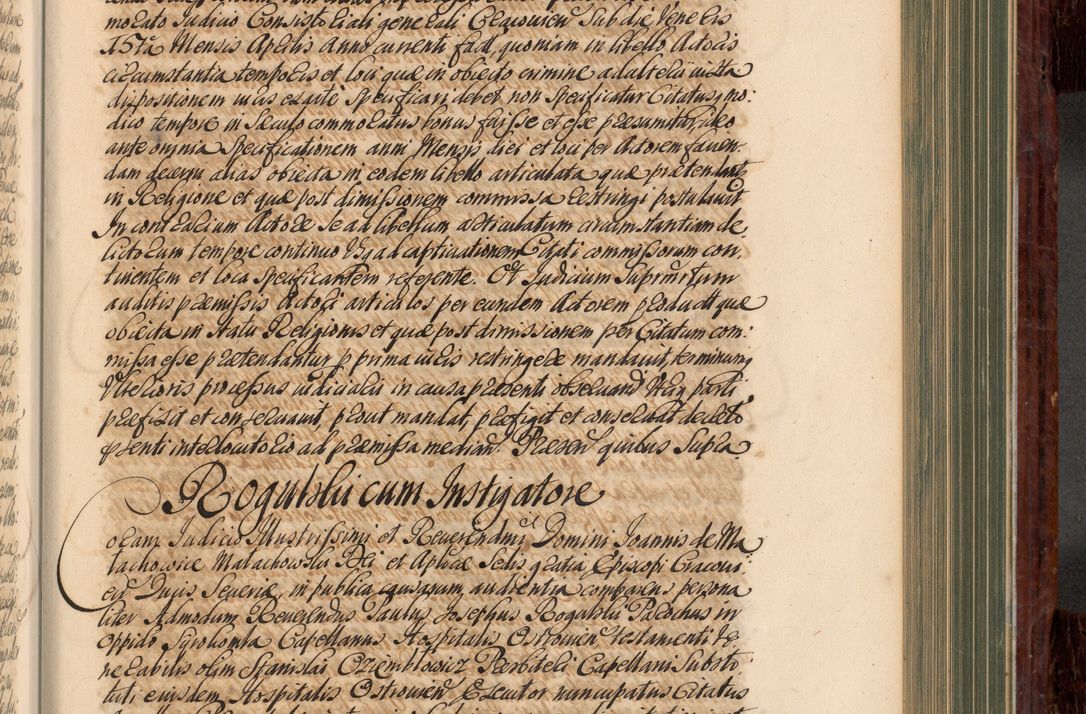 molato Judicio Consistoriali generali Cracovien Sub die Veneris
15ta Mensis Aprilis Anno currenti fact, quoniam in libello Actoris
circumstantia temporis et loci quæ in obiecto crimine adulterii iuxta
dispositionem iuris exarte specificari debet non specificatur Citatusq mo:
dico tempore in Sæculo commoratus bonus fuisse et esse præsumitur, ideo
ante omnia Specificationem anni Mensis diei et loci per Actorem facien-
dam decerni alias obiecta in eodem libello articulata quæ prætendunt
in Religione et quæ post dimissionem commissa restringi postulavit
In contrarium Actore se ad libellum articulatum circumstantiam de
lictorum tempore continuo Usq ad captivationem Citati commissorum con-
tinentem et loca Specificantem referente. Et Judicium Suprascriptum
auditis præmissis Actori articulos per eundem Actorem productos quæ
obiecta in statu Religionis et quæ post dimissionem per Citatum com-
missa esse prætendantur p prima iuris restringere mandavit, terminum
Ulterioris processus iudicialis in causa præsenti observand Utriq parti
præfixit et conservavit, prout mandat, præfigit et conservat decreto
præsenti interlocutorio ad præmissa median. Præsen quibus supra
Rogulski cum Instigatore
Coram Judicio Illustrissimi et Reverendmi Domini Joannis de Ma
łachowice Małachowski Dei et Aplicæ Sedis gratia Episcopi Cracovi
en Ducis Severiæ, in publica causarum audientia comparens persona
liter Admodum Reverendus Paulus Josephus Rogulski Parochus in
oppido Capellanus Hospitalis Ostrovien testamenti ve
nerabilis olim Stanislai Czemblowicz Presbiteri Capellani Substi
tuti eiusdem Hospitalis Ostrovien Executor nuncupatus Citatus